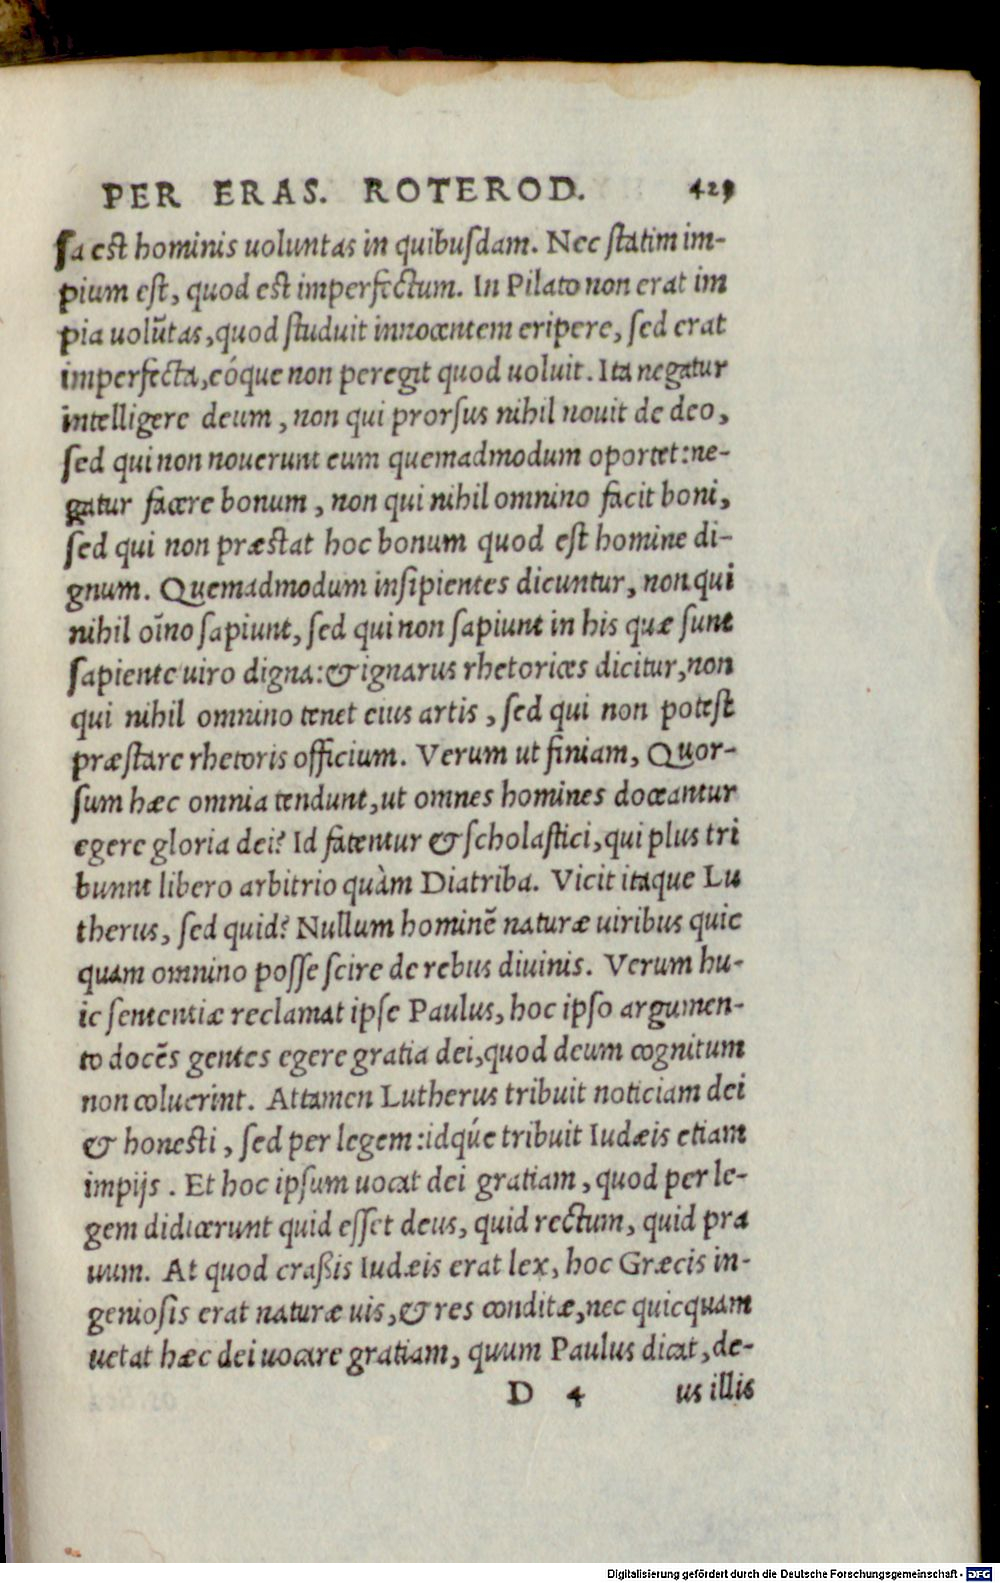 PER ERAS. ROTEROD. 429
ſa est hominis uoluntas in quibuſdam. Nec ſtatim im-
pium eſt, quod est imperfectum. In Pilato non erat im
pia uolūtas, quod ſtuduit innocentem eripere, ſed erat
imperfecta, eóque non peregit quod uoluit. Ita negatur
intelligere deum, non qui prorſus nihil nouit de deo,
ſed qui non nouerunt eum quemadmodum oportet: ne-
gatur facere bonum, non qui nihil omnino facit boni,
ſed qui non præstat hoc bonum quod eſt homine di-
gnum. Quemadmodum inſipientes dicuntur, non qui
nihil oīno ſapiunt, ſed qui non ſapiunt in his quæ ſunt
ſapiente uiro digna: & ignarus rhetorices dicitur, non
qui nihil omnino tenet eius artis, ſed qui non poteſt
præſtare rhetoris officium. Verum ut finiam, Quor-
ſum hæc omnia tendunt, ut omnes homines doceantur
egere gloria dei? Id fatentur & ſcholaſtici, qui plus tri
bunnt libero arbitrio quàm Diatriba. Vicit itaque Lu
therus, ſed quid? Nullum hominē naturæ uiribus quic
quam omnino poſſe ſcire de rebus diuinis. Verum hu-
ic ſententiæ reclamat ipſe Paulus, hoc ipſo argumen-
to docēs gentes egere gratia dei, quod deum cognitum
non coluerint. Attamen Lutherus tribuit noticiam dei
& honesti, ſed per legem: idq́ue tribuit Iudæis etiam
impijs. Et hoc ipſum uocat dei gratiam, quod per le-
gem didicerunt quid eſſet deus, quid rectum, quid pra
uum. At quod craßis Iudæis erat lex, hoc Græcis in-
genioſis erat naturæ uis, & res conditæ, nec quicquam
uetat hæc dei uocare gratiam, quum Paulus dicat, de-
D 4 us illis
Digitalisierung gefördert durch die Deutsche Forschungsgemeinschaft - DFG